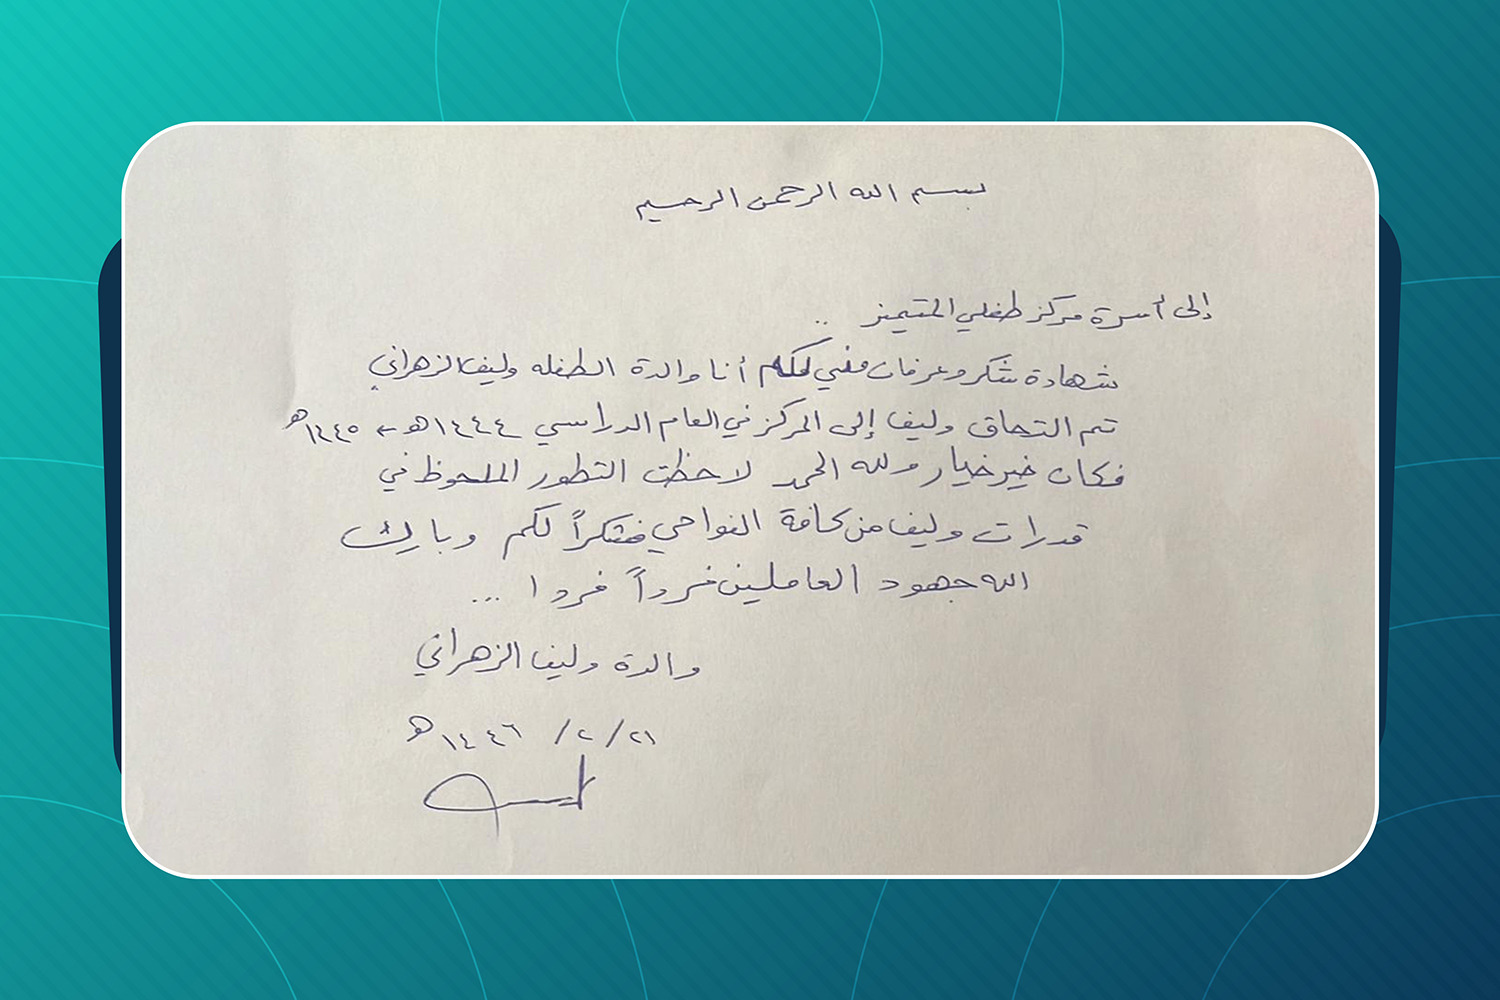 بسم الله الرحمن الرحيم
إلى أسرة مركز طفلي المتميز ..
شهادة شكر وعرفان مني لكم أنا والدة الطفله وليف الزهراني
تم التحاق وليف إلى المركز في العام الدراسي ١٤٤٤هـ ← ١٤٤٥هـ
فكان خير خيار ولله الحمد لاحظت التطور الملحوظ في
قدرات وليف من كافة النواحي فشكراً لكم وبارك
الله جهود العاملين فرداً فردا ...
والدة وليف الزهراني
٢١/ ٢/ ١٤٤٦هـ